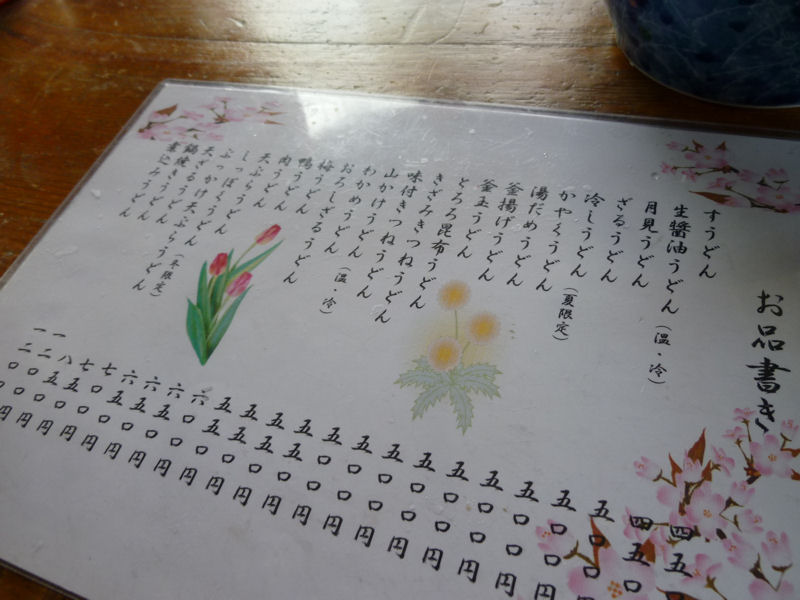 お品書き
すうどん
生醬油うどん（温・冷）
月見うどん
ざるうどん
冷しうどん（夏限定）
かやくうどん
湯だめうどん
釜揚げうどん
釜玉うどん
とろろ昆布うどん
きざみきつねうどん
味付きつねうどん
山かけうどん
わかめうどん（温・冷）
おろしざるうどん
梅うどん
鴨うどん
肉うどん
天ぷらうどん
しっぽくうどん
ぶっかけ天ぷらうどん
天ざるうどん
鍋焼きうどん（冬限定）
煮込みうどん
四五
四五〇
五〇〇
五〇〇
五〇〇円
五〇〇円
五〇〇円
五〇〇円
五〇〇円
五〇〇円
五〇〇円
五五〇円
五五〇円
五五〇円
五五〇円